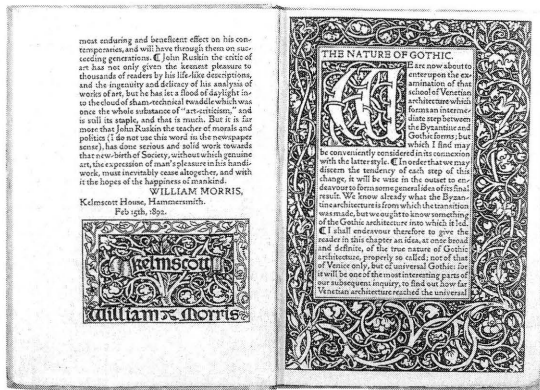 most enduring and beneficent effect on his con-
temporaries, and will have through them on suc-
ceeding generations. ¶ John Ruskin the critic of
art has not only given the keenest pleasure to
thousands of readers by his life-like descriptions,
and the ingenuity and delicacy of his analysis of
works of art, but he has let a flood of daylight in-
to the cloud of sham-technical twaddle which was
once the whole substance of "art-criticism," and
is still its staple, and that is much. But it is far
more that John Ruskin the teacher of morals and
politics (I do not use this word in the newspaper
sense), has done serious and solid work towards
that new-birth of Society, without which genuine
art, the expression of man's pleasure in his handi-
work, must inevitably cease altogether, and with
it the hopes of the happiness of mankind.
WILLIAM MORRIS,
Kelmscott House, Hammersmith.
Feb 15th, 1892.
Kelmscott
William Morris
THE NATURE OF GOTHIC.
WE are now about to
enter upon the ex-
amination of that
school of Venetian
architecture which
forms an interme-
diate step between
the Byzantine and
Gothic forms; but
which I find may
be conveniently considered in its connexion
with the latter style. ¶ In order that we may
discern the tendency of each step of this
change, it will be wise in the outset to en-
deavour to form some general idea of its final
result. We know already what the Byzan-
tine architecture is from which the transition
was made, but we ought to know something
of the Gothic architecture into which it led.
¶ I shall endeavour therefore to give the
reader in this chapter an idea, at once broad
and definite, of the true nature of Gothic
architecture, properly so called; not of that
of Venice only, but of universal Gothic: for
it will be one of the most interesting parts of
our subsequent inquiry, to find out how far
Venetian architecture reached the universal